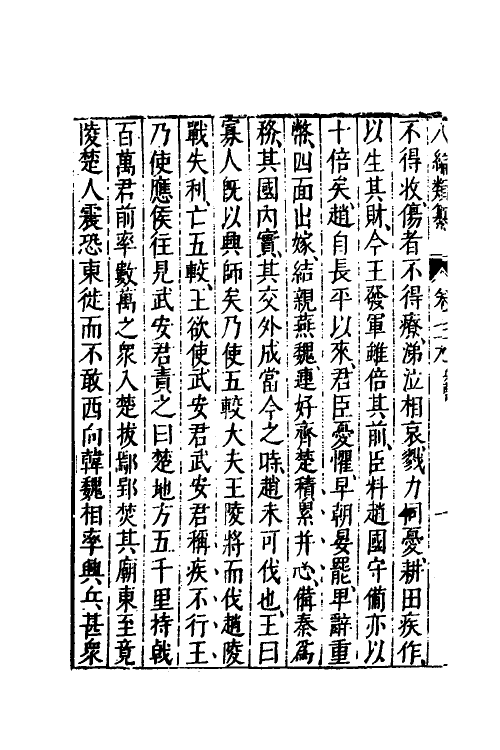 八編類纂 卷二十九
不得收傷者不得療涕泣相哀戮力同憂耕田疾作
以生其財今王發軍雖倍其前臣料趙國守備亦以
十倍矣趙自長平以來君臣憂懼早朝晏罷早辭重
幣四面出嫁結親燕魏連好齊楚積累并心備秦爲
務其國內實其交外成當今之時趙未可伐也王曰
寡人既以興師矣乃使五較大夫王陵將而伐趙陵
戰失利亡五較王欲使武安君武安君稱疾不行王
乃使應侯往見武安君責之曰楚地方五千里持戟
百萬君前率數萬之衆入楚拔鄢郢焚其廟東至竟
陵楚人震恐東徙而不敢西向韓魏相率興兵甚衆